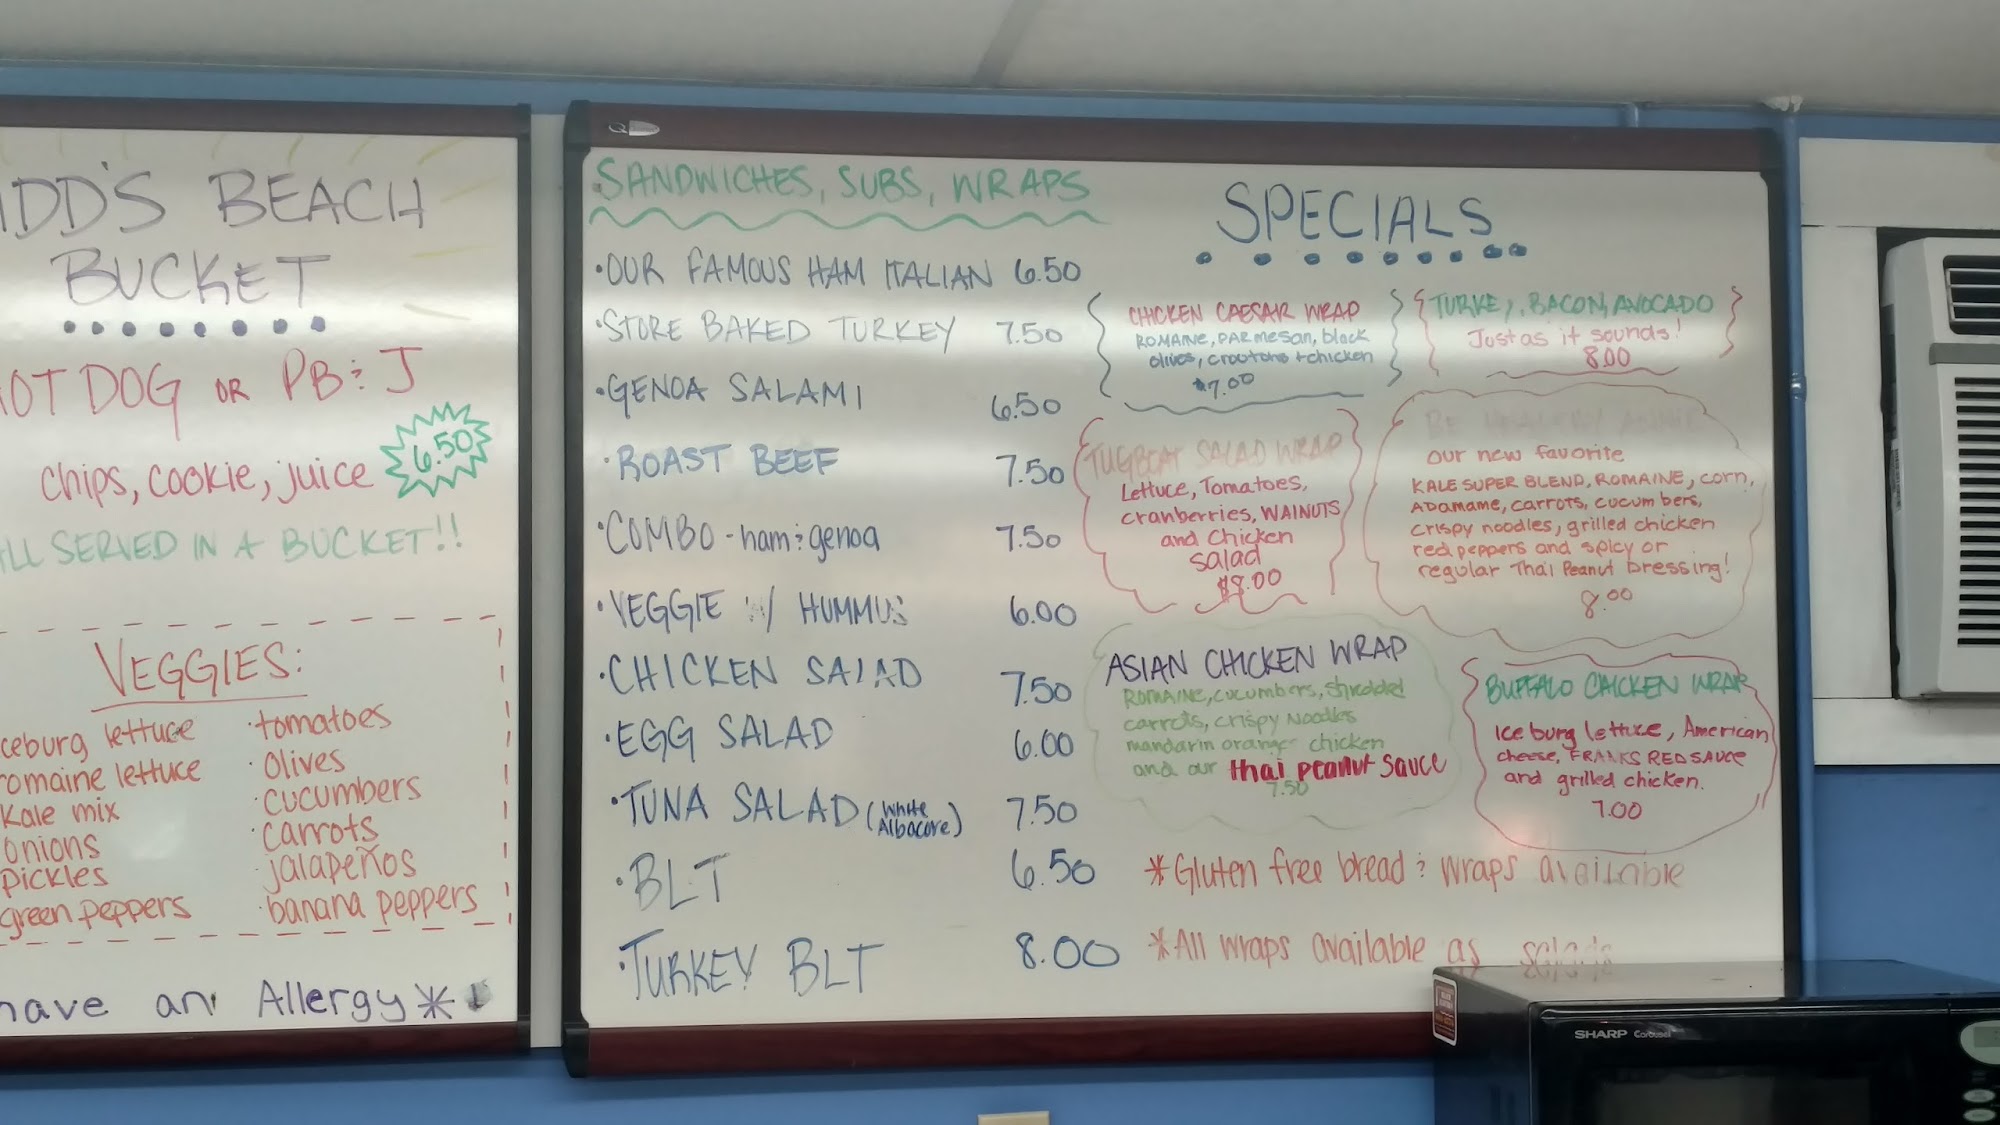 BEACH
BUCKET
HOT DOG OR PB & J
chips, cookie, juice
6.50
ALL SERVED IN A BUCKET!!
VEGGIES:
iceburg lettuce
romaine lettuce
Kale mix
onions
pickles
green peppers
·tomatoes
·olives
·cucumbers
·carrots
·jalapeños
·banana peppers
have an Allergy*
SANDWICHES, SUBS, WRAPS
·OUR FAMOUS HAM ITALIAN 6.50
·STORE BAKED TURKEY 7.50
·GENOA SALAMI 6.50
·ROAST BEEF 7.50
·COMBO - ham & genoa 7.50
·VEGGIE W/ HUMMUS 6.00
·CHICKEN SALAD 7.50
·EGG SALAD 6.00
·TUNA SALAD (White Albacore) 7.50
·BLT 6.50
·TURKEY BLT 8.00
SPECIALS
CHICKEN CAESAR WRAP
ROMAINE, PARMESAN, black
olives, croutons + chicken
$7.00
TURKEY, BACON, AVOCADO
Just as it sounds!
8.00
TUGBOAT SALAD WRAP
Lettuce, Tomatoes,
cranberries, WALNUTS
and chicken
salad
$8.00
BE HEALTHY
our new favorite
KALE SUPER BLEND, ROMAINE, corn,
ADAMAME, carrots, cucumbers,
crispy noodles, grilled chicken
red peppers and spicy or
regular Thai Peanut Dressing!
8.00
ASIAN CHICKEN WRAP
ROMAINE, cucumbers, shredded
carrots, crispy Noodles
mandarin orange chicken
and our thai peanut sauce
7.50
BUFFALO CHICKEN WRAP
Iceburg lettuce, American
cheese, FRANKS RED SAUCE
and grilled chicken.
7.00
*Gluten free bread & wraps available
*All wraps available as salads
SHARP Carousel